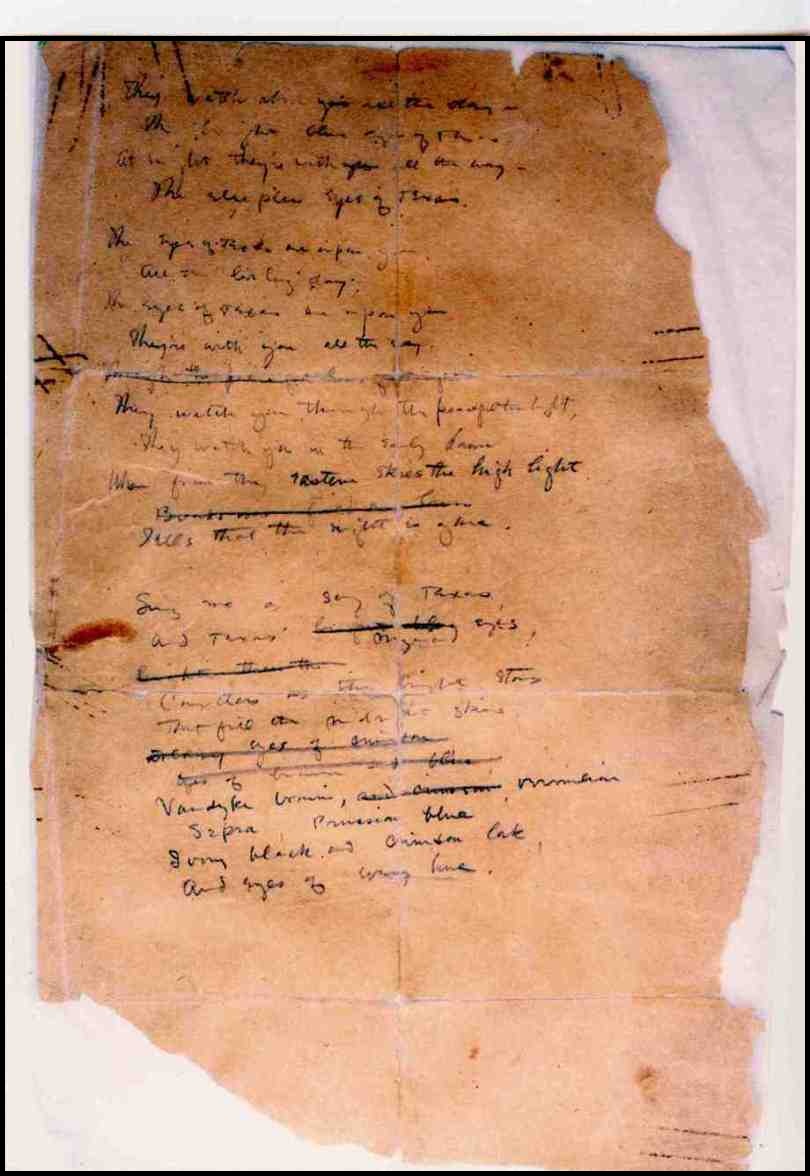 They watch above you all the day —
The bright blue eyes of Texas.
At night they're with you all the way —
The sleepless eyes of Texas.
The eyes of Texas are upon you
All the livelong day;
The eyes of Texas are upon you
They're with you all the way.
They watch you through the peaceful night,
They watch you in the early dawn
When from the eastern skies the high light
Tells that the night is gone.
Sing me a song of Texas,
And Texas' eyes,
Countless as the bright stars
That fill the midnight skies
eyes of
eyes of brown and blue
Vandyke brown, and crimson, vermilion
Sepia, Prussian blue
Ivory black and crimson lake,
And eyes of every hue.